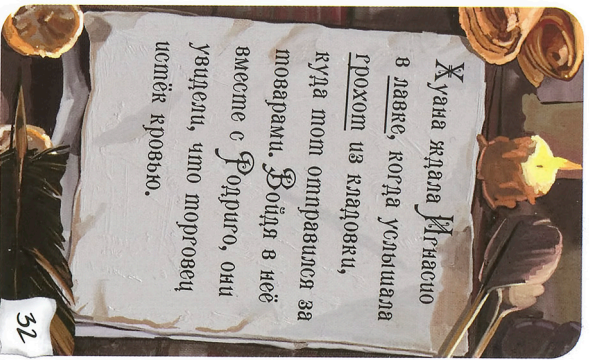 Хуана ждала Игнасио
в лавке, когда услышала
грохот из кладовки,
куда тот отправился за
товарами. Войдя в неё
вместе с Родриго, они
увидели, что торговец
истёк кровью.
32